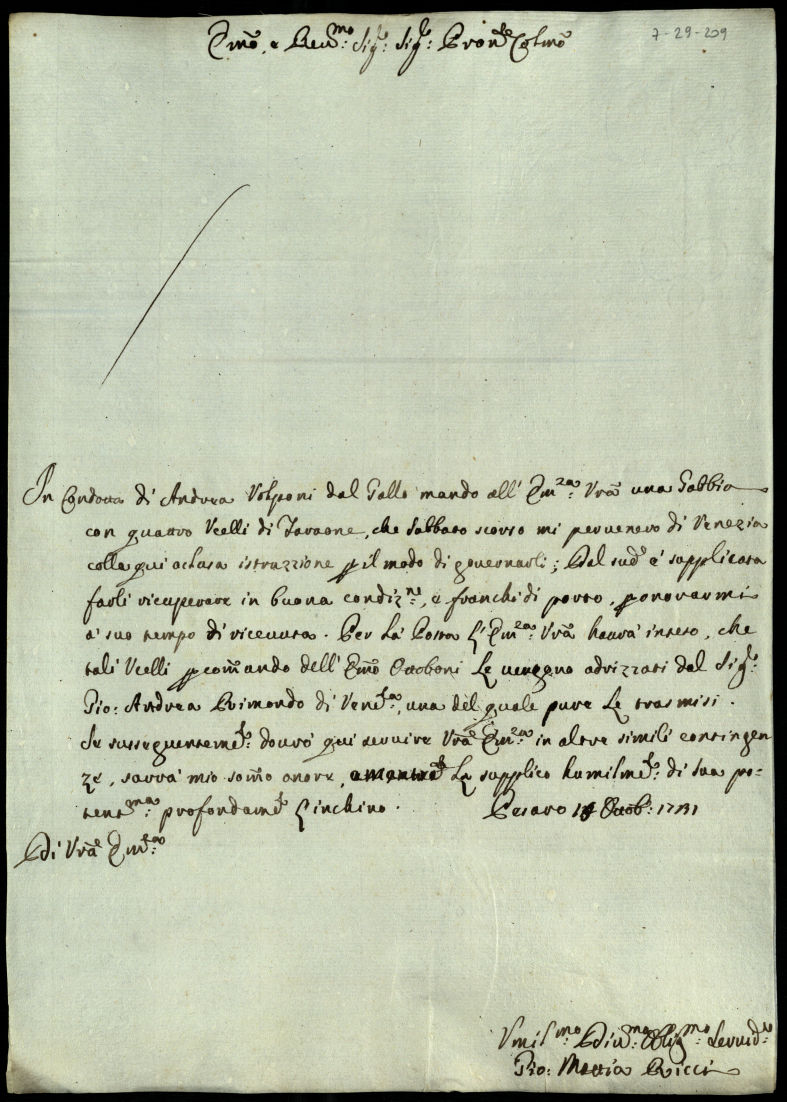 Emõ, e Reu.mo Sig.r Sig.r Pron.e Colmõ
7-29-209
In Condotta di Andrea Volponi dal Gallo mando all' Em.za Vrã una Gabbia
con quattro Vcelli di Faraone, che Sabbato scorso mi peruenero di Venezia
colla qui aclusa istruzzione p il modo di gouernarli; Dal sud.o è supplicata
farli ricuperare in buona condiz.ne, e franchi di porto, p onorarmi
à suo tempo di riceuuta. Per La Posta L'Em.za Vrã haurà inteso, che
tali Vcelli p comãndo dell' Emõ Ottoboni Le uengono adrizzati dal Sig.r
Gio: Andrea Raimondo di Ven.za, una del quale pure Le trasmisi.
Se susseguentem.te dourò qui seruire Vrã Em.za in altre simili contingen
ze, sarrà mio somõ onore, La supplico humilm.te di sua po-
tent.ma profondam.te L'inchino. Pesaro 14 Ottob: 1731
Di Vrã Em.za
Vmil.mo Diu.mo Oblig.mo Seruid.e
Gio: Mattia Ricci